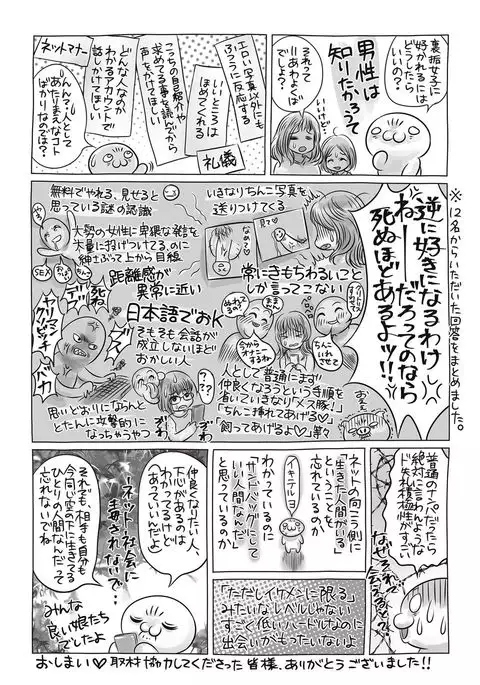 裏垢女子に
好かれるには
どうしたら
いいの？
男性は
知りたかろうて
それって
＝あわよくば
でしょ？
いいけど
エロい写真以外にも
ふつうに反応する
いいところは
ほめてくれる
礼儀
こっちの自己紹介や
求めてる事を読んでから
声をかけてほしい
どんな人なのか
わかるアカウントで
話しかけてほしい
ネットマナー
んん？…人として
あたりまえなコト
ばかりなのでは？
※12名からいただいた回答をまとめました。
逆に好きになるわけ
ねーーだろってのなら
死ぬほどあるよッ!!
いきなりちんこ写真を
送りつけてくる
無料でやれる、見せると
思っている謎の認識
大勢の女性に卑猥な発言を
大量に投げつけてるのに
紳士ぶって上から目線
常にきもちわるいこと
しか言ってこない
距離感が
異常に近い
日本語でおK
そもそも会話が
成立しないほど
おかしい人
SEX
死ね
ヤリマン
クソビッチ
バカ
人として普通にまず
仲良くなろうという手順を
省いていきなり「メス豚！」
「ちんこ挿れてあげる♡」
「飼ってあげるよ♡」等々
思いどおりにならんと
とたんに攻撃的に
なっちゃうやつ
ざわ
ざわ
普通のナンパだったら
絶対に言わんような
ド失礼積極性がすごい
なぜそれで
会えると…？
ネットの向こう側に
「生きた人間がいる」
ということを
忘れているのか
イキニルヨ
わかっているのに
「サンドバッグにして
いい人間なんだ」
と思っているのか
「ただしイケメンに限る」
みたいなレベルじゃない
すごく低いハードルなのに
出会いがもったいないよ
仲良くなりたい人、
下心があるのは
わかってるけど
あっていいんだ
ーネット社会に
毒されないで…
それでも、相手も自分も
今同じ空の下に生きてる
ひとりの人間なんだって
忘れないでね
みんな
良い娘たち
でしたよ
おしまい♡取材協力してくださった皆様、ありがとうございました!!